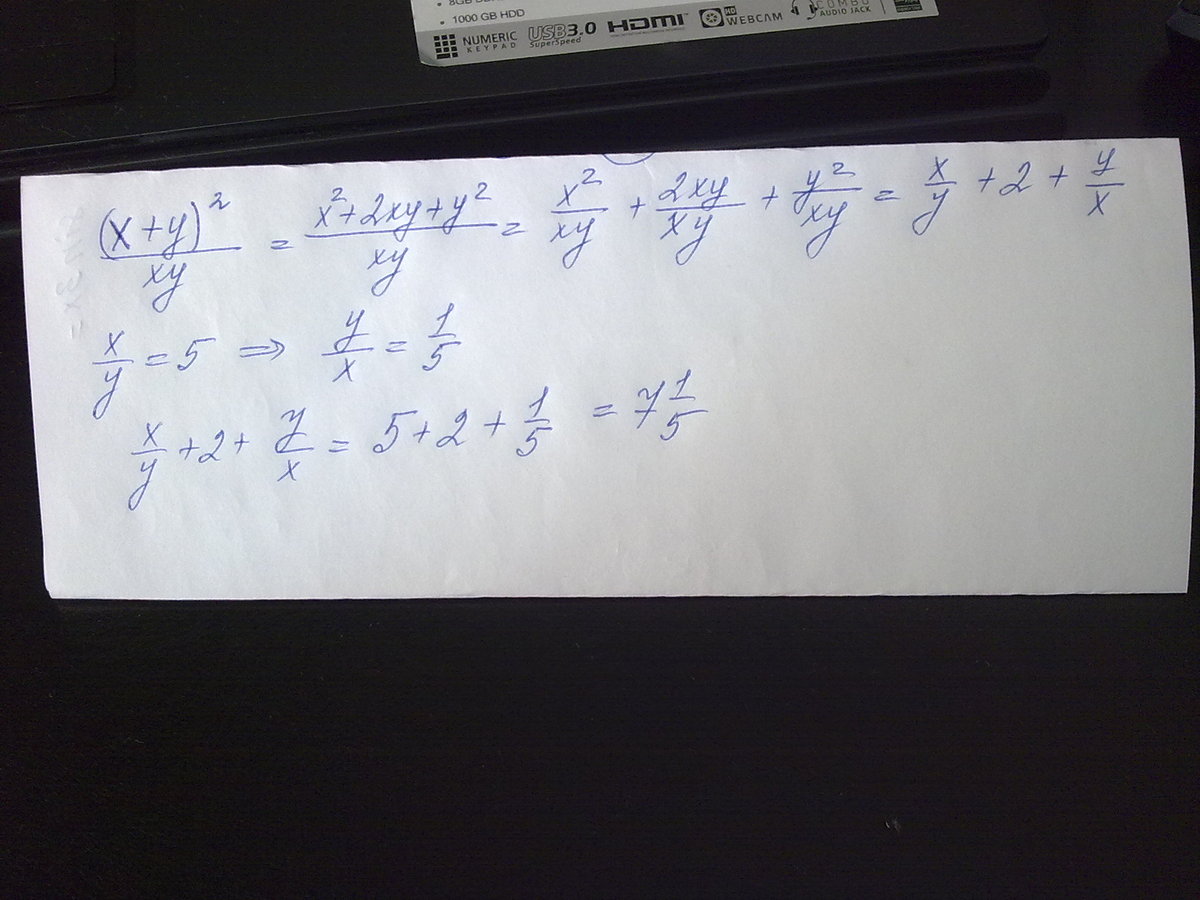 • 1000 GB HDD
NUMERIC KEYPAD USB3.0 SuperSpeed HDMI HD WEBCAM COMBO AUDIO JACK
(x+y)²/xy = x²+2xy+y²/xy = x²/xy + 2xy/xy + y²/xy = x/y + 2 + y/x
x/y = 5 ⇒ y/x = 1/5
x/y + 2 + y/x = 5 + 2 + 1/5 = 7 1/5